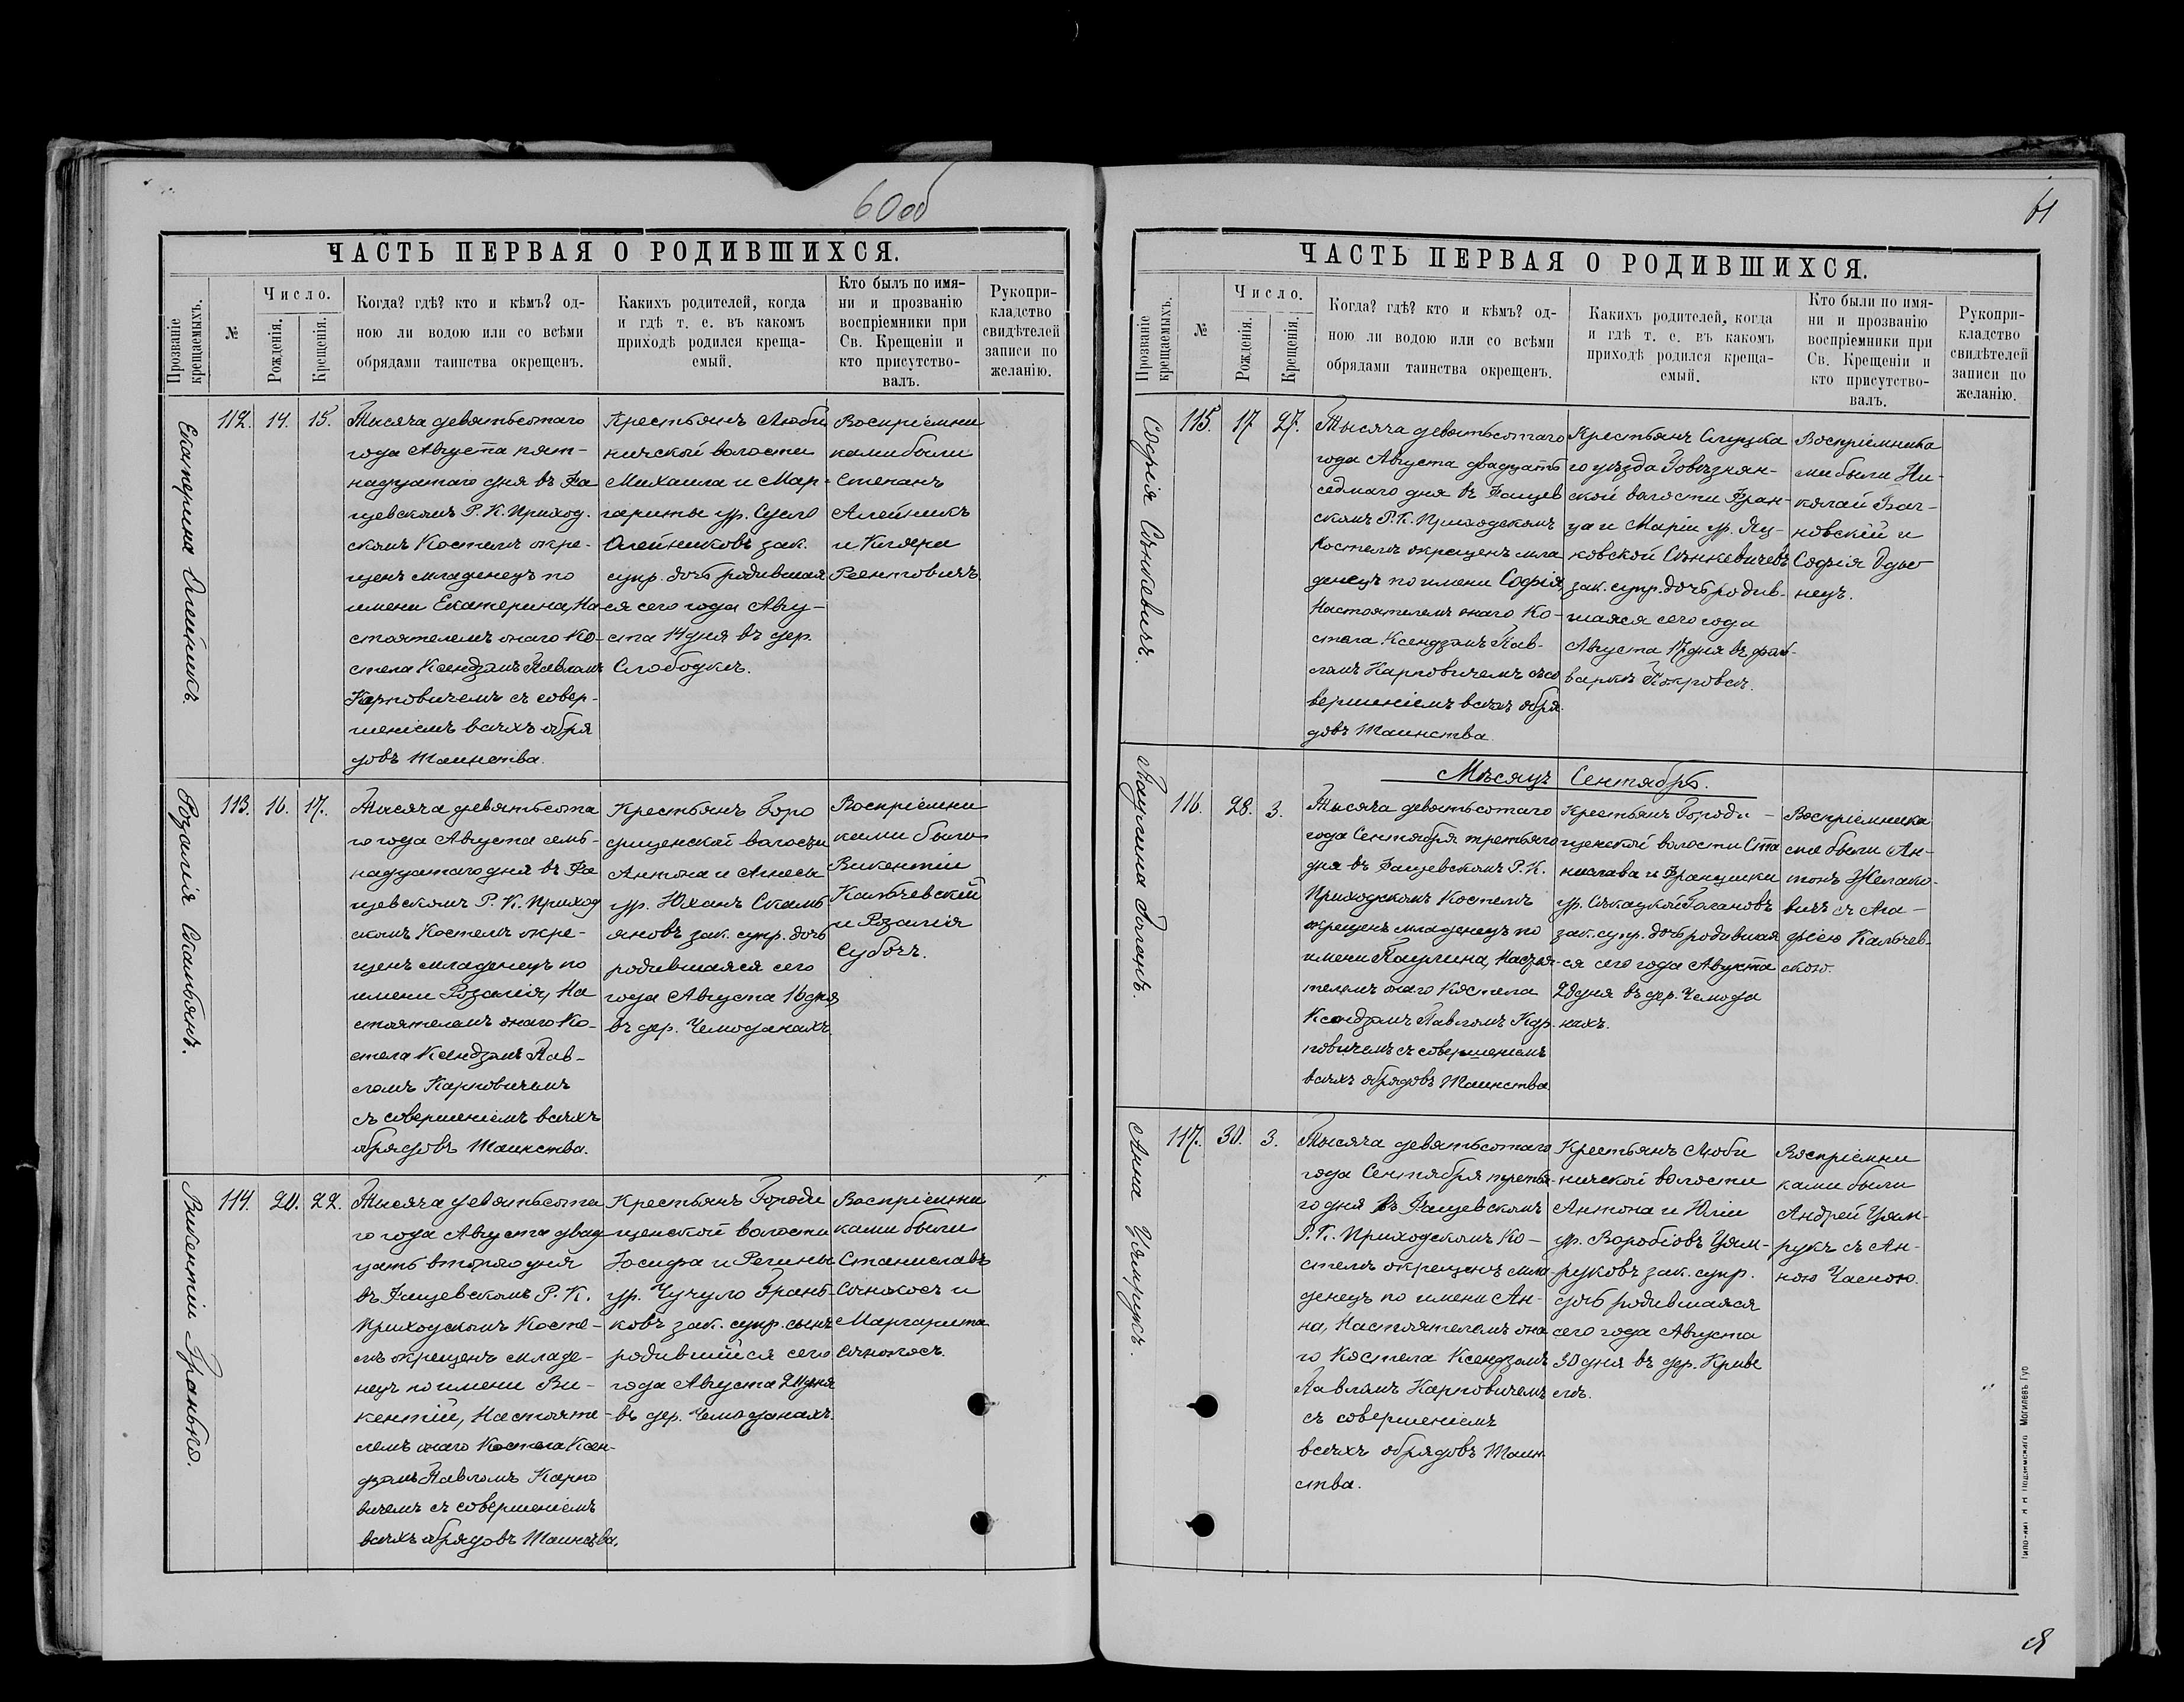 60об
ЧАСТЬ ПЕРВАЯ О РОДИВШИХСЯ.
Прозваніе крещаемыхъ.
№
Число.
Рожденія.
Крещенія.
Когда? гдѣ? кто и кѣмъ? од-
ною ли водою или со всѣми
обрядами таинства окрещенъ.
Какихъ родителей, когда
и гдѣ т. е. въ какомъ
приходѣ родился креща-
емый.
Кто былъ по имя-
ни и прозванію
воспріемники при
Св. Крещеніи и
кто присутство-
валъ.
Рукопри-
кладство
свидѣтелей
записи по
желанію.
Екатерина Олейникъ.
112. 14. 15.
Тысяча девятьсотаго
года Августа пят-
надцатаго дня въ Фа
щевскомъ Р. К. Приход.
скомъ Костелѣ окре-
щенъ младенецъ по
имени Екатерина, На
стоятелемъ онаго Ко-
стела Ксендзомъ Павломъ
Карповичемъ съ совер-
шеніемъ всѣхъ обря
довъ Таинства.
Крестьянъ Люби
ничской волости
Михаила и Мар-
гариты ур. Сусло
Олейниковъ зак.
супр. дочь родившая
ся сего года Авгу-
ста 14 дня въ дер.
Слободкѣ.
Воспріемни
ками были
Степанъ
Алейникъ
и
Реентовичъ.
Розалія Скамьянъ.
113. 16. 17.
Тысяча девятьсота
го года Августа семь-
надцатаго дня въ Фа
щевскомъ Р. К. Приход
скомъ Костелѣ окре-
щенъ младенецъ по
имени Розалія, На
стоятелемъ онаго Ко-
стела Ксендзомъ Пав-
ломъ Карповичемъ
съ совершеніемъ всѣхъ
обрядовъ Таинства.
Крестьянъ Горо
дищенской волости
Антона и Агнесы
ур. Юханъ Скамь
яновъ зак. супр. дочь
родившаяся сего
года Августа 16 дня
въ дер. Чемоданахъ
Воспріемни
ками были
Викентій
Кальчевскій
и Розалія
Субочъ.
Викентій Гранько.
114. 20. 22.
Тысяча девятьсота
го года Августа двад
цать втораго дня
въ Фащевскомъ Р. К.
Приходскомъ Косте-
лѣ окрещенъ младе-
нецъ по имени Ви-
кентій, Настояте-
лемъ онаго Костела Ксен-
дзомъ Павломъ Карпо
вичемъ съ совершеніемъ
всѣхъ обрядовъ Таинства.
Крестьянъ Городи
щенской волости
Іосифа и Регины
ур. Чучуло Грань-
ковъ зак. супр. сынъ
родившійся сего
года Августа 20 дня
въ дер. Чемоданахъ.
Воспріемни
ками были
Станиславъ
Сѣнокосъ и
Маргарита
Сѣнокосъ.
61
ЧАСТЬ ПЕРВАЯ О РОДИВШИХСЯ.
Прозваніе крещаемыхъ.
№
Число.
Рожденія.
Крещенія.
Когда? гдѣ? кто и кѣмъ? од-
ною ли водою или со всѣми
обрядами таинства окрещенъ.
Какихъ родителей, когда
и гдѣ т. е. въ какомъ
приходѣ родился креща-
емый.
Кто были по имя-
ни и прозванію
воспріемники при
Св. Крещеніи и
кто присутство-
валъ.
Рукопри-
кладство
свидѣтелей
записи по
желанію.
Софія Сѣнкевичъ.
115. 17 27.
Тысяча девятьсотаго
года Августа двадцать
седмаго дня въ Фащев
скомъ Р. К. Приходскомъ
Костелѣ окрещенъ мла
денецъ по имени Софія,
Настоятелемъ онаго Ко-
стела Ксендзомъ Пав-
ломъ Карповичемъ съ со
вершеніемъ всѣхъ обря-
довъ Таинства.
Крестьянъ Слуцка
го уѣзда Говѣзнян-
ской волости Фран-
ца и Маріи ур. Яц-
ковской Сѣнкевичевъ
зак. супр. дочь родив-
шаяся сего года
Августа 17 дня въ фоль-
варкѣ Покровск.
Воспріемника
ми были Ни-
колай Баг-
новскій и
Софія Оды-
нецъ.
Мѣсяцъ Сентябрь.
Паулина Гоганъ.
116. 28. 3.
Тысяча девятьсотаго
года Сентября третьяго
дня въ Фащевскомъ Р. К.
Приходскомъ Костелѣ
окрещенъ младенецъ по
имени Паулина, Настоя-
телемъ онаго Костела
Ксендзомъ Павломъ Кар-
повичемъ съ совершеніемъ
всѣхъ обрядовъ Таинства
Крестьянъ Городи-
щенской волости Ста
нислава и Францишки
ур. Гогановъ
зак. супр. дочь родившая
ся сего года Августа
28 дня въ дер. Чемода
нахъ.
Воспріемника
ми были Ан-
тонъ Желако-
вичъ съ Ага-
фіею Кальчев-
скою.
Анна Цямрукъ.
117. 30. 3.
Тысяча девятьсотаго
года Сентября третья-
го дня въ Фащевскомъ
Р. К. Приходскомъ Ко-
стелѣ окрещенъ мла
денецъ по имени Ан-
на, Настоятелемъ она
го Костела Ксендзомъ
Павломъ Карповичемъ
съ совершеніемъ
всѣхъ обрядовъ Таин-
ства.
Крестьянъ Люби
ничской волости
Антона и Юліи
ур. Воробіовъ Цям-
руковъ зак. супр.
дочь родившаяся
сего года Августа
30 дня въ дер. Криве
лѣ.
Воспріемни
ками были
Андрей Цям-
рукъ съ Ан-
ною Часною.
Могилевъ Губ